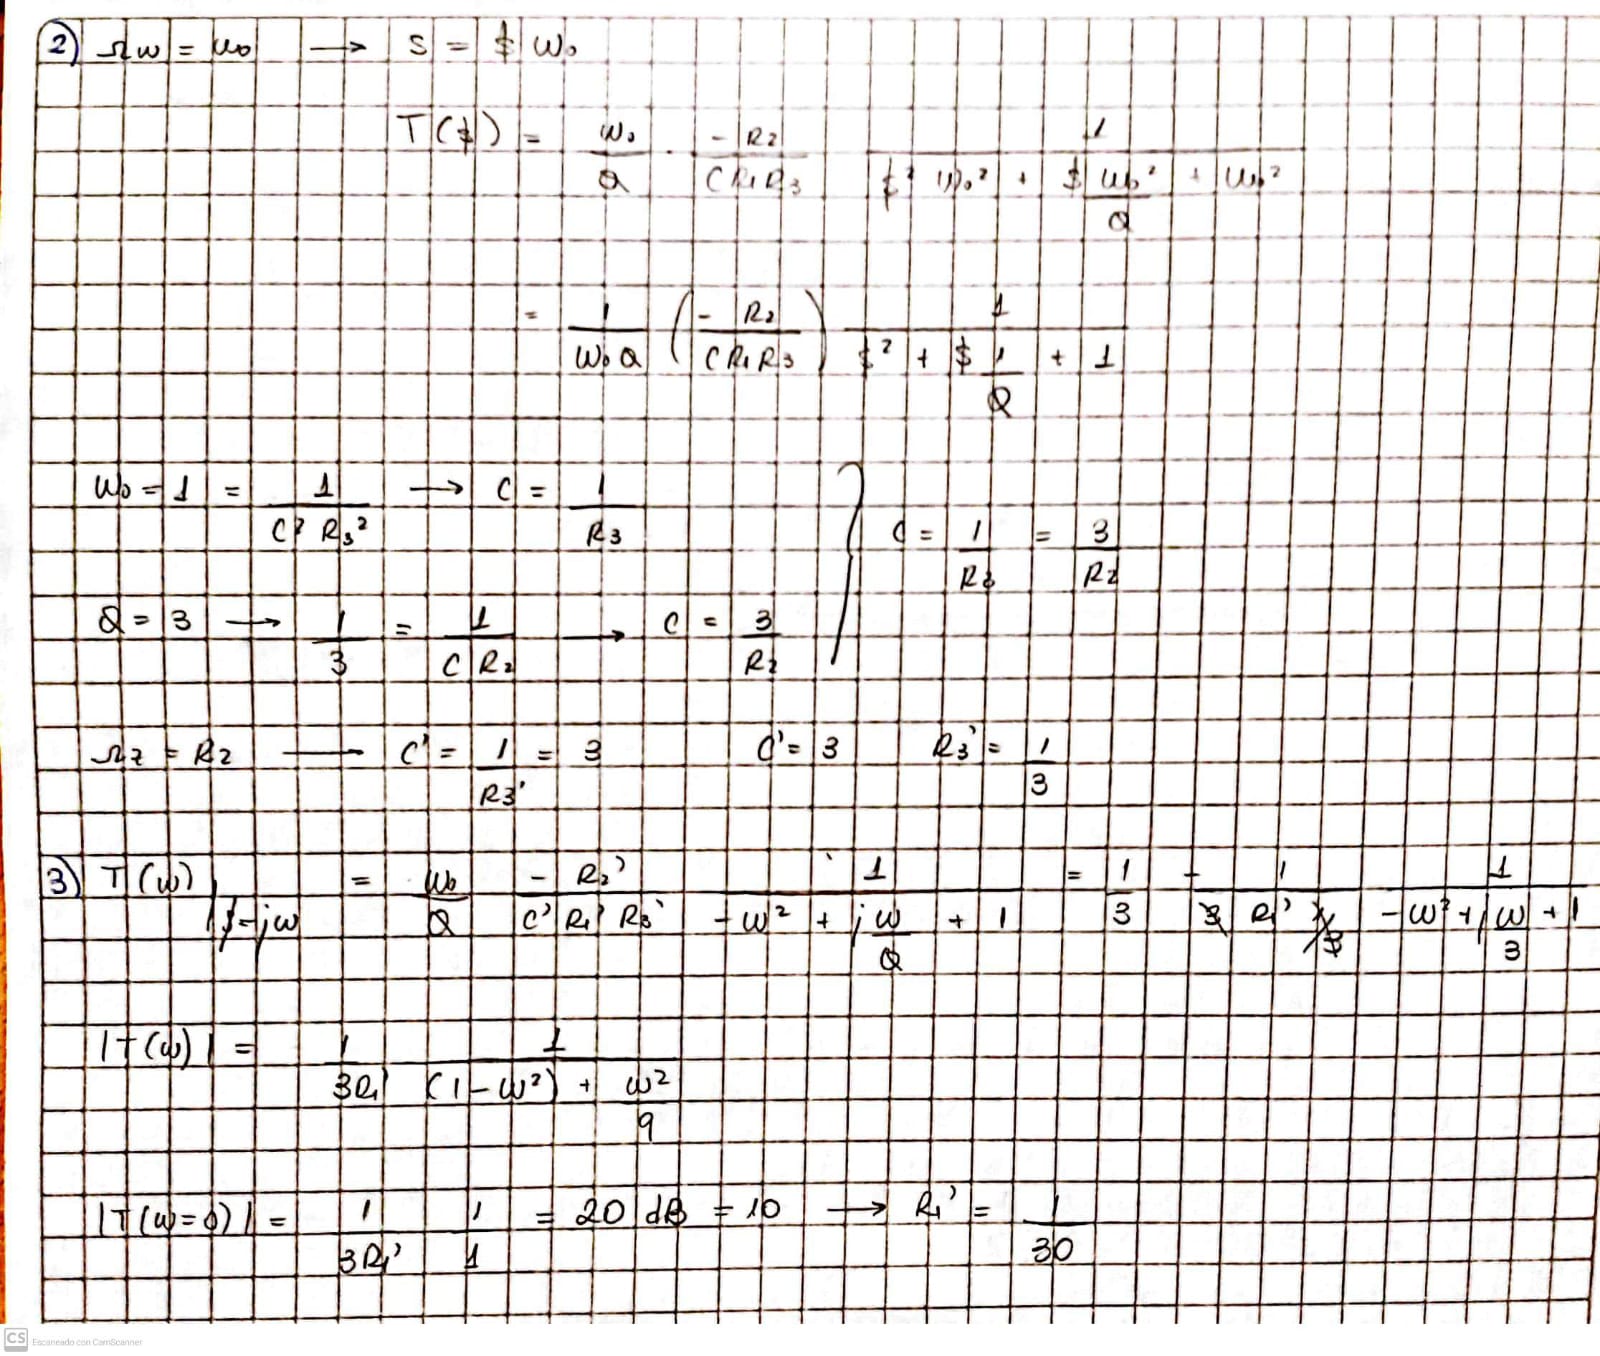 2) Ωw = ω₀ → S = $ ω₀
T($) = ω₀/Q · -R₂/(C R₁ R₃) 1/($² ω₀² + $ ω₀²/Q + ω₀²)
= 1/(ω₀ Q) (-R₂/(C R₁ R₃)) 1/($² + $ 1/Q + 1)
ω₀ = 1 = 1/(C² R₃²) → C = 1/R₃
C = 1/R₃ = 3/R₂
Q = 3 → 1/3 = 1/(C R₂) → C = 3/R₂
Ωz = R₂ — C' = 1/R3' = 3 C' = 3 R₃' = 1/3
3) T(ω)|$=jω = ω₀/Q -R₂'/(C' R₁' R₃') 1/(-ω² + j ω/Q + 1) = 1/3 - 1/(3 R₁' 1/3) 1/(-ω² + j ω/3 + 1)
|T(ω)| = 1/(3R₁') 1/((1-ω²) + ω²/9)
|T(ω=0)| = 1/(3R₁') 1/1 = 20 dB = 10 → R₁' = 1/30
CS Escaneado con CamScanner